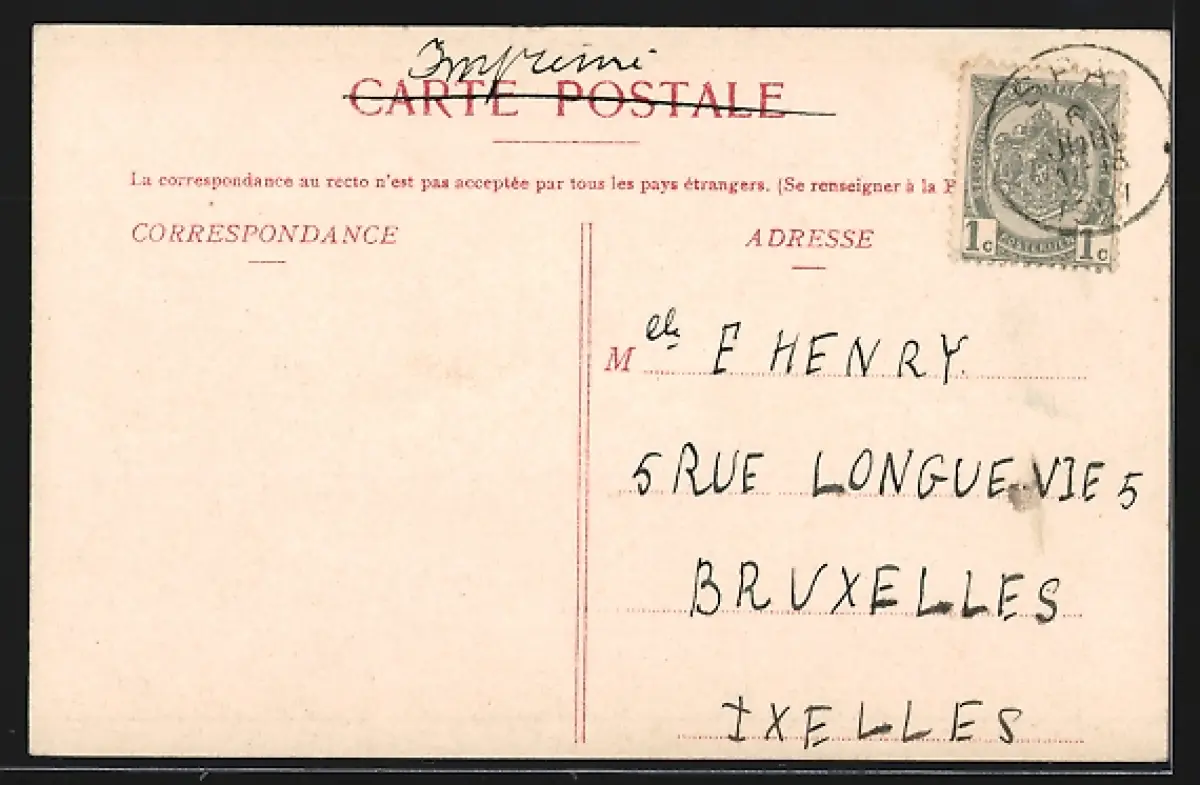 Imprimé
CARTE POSTALE
La correspondance au recto n'est pas acceptée par tous les pays étrangers. (Se renseigner à la
CORRESPONDANCE
ADRESSE
M elle E HENRY.
5 RUE LONGUE VIE 5
BRUXELLES
IXELLES
1c 1c
SPA